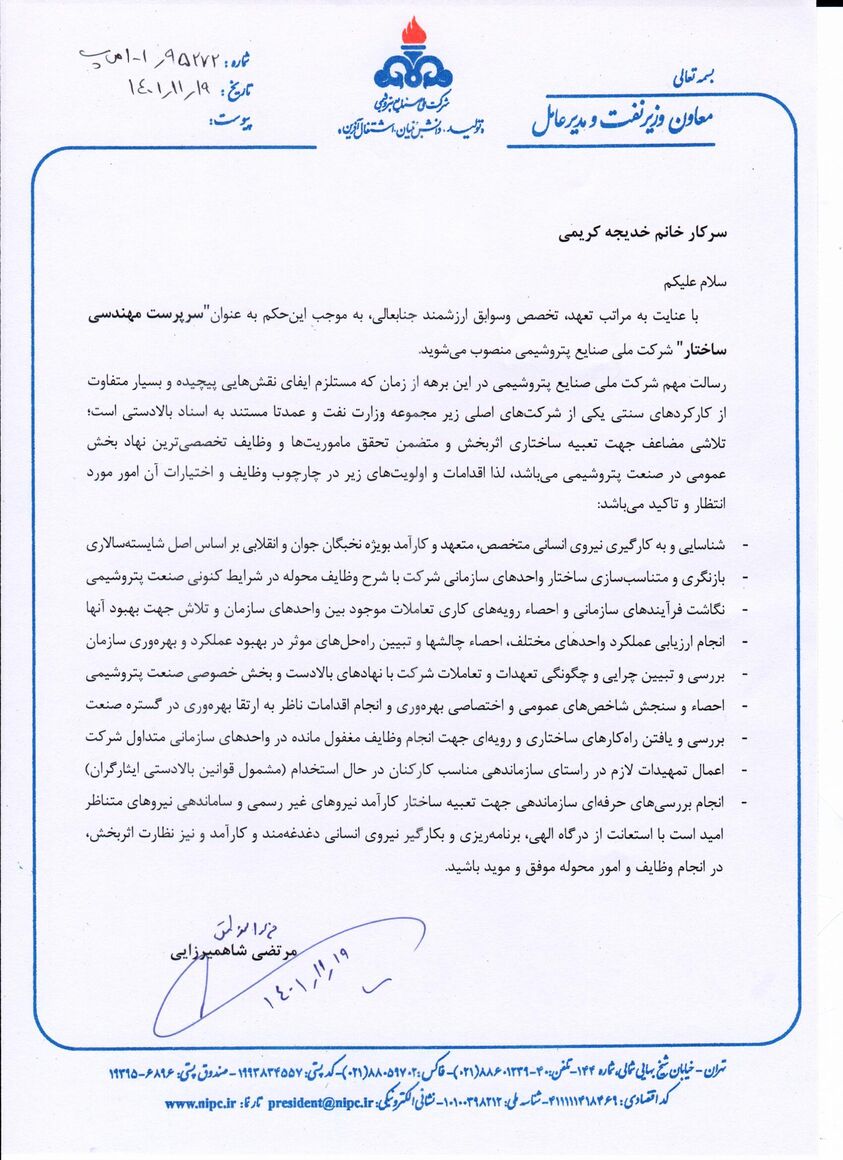 بسمه تعالی
معاون وزیر نفت و مدیرعامل
شرکت ملی صنایع پتروشیمی
«تولید، دانش‌بنیان، اشتغال‌آفرین»
شماره: ۹۵۲۷۲/
تاریخ: ۱۴۰۱/۱۱/۱۹
پیوست:
سرکار خانم خدیجه کریمی
سلام علیکم
با عنایت به مراتب تعهد، تخصص وسوابق ارزشمند جنابعالی، به موجب این‌حکم به عنوان"سرپرست مهندسی
ساختار" شرکت ملی صنایع پتروشیمی منصوب می‌شوید.
رسالت مهم شرکت ملی صنایع پتروشیمی در این برهه از زمان که مستلزم ایفای نقش‌هایی پیچیده و بسیار متفاوت
از کارکردهای سنتی یکی از شرکت‌های اصلی زیر مجموعه وزارت نفت و عمدتا مستند به اسناد بالادستی است؛
تلاشی مضاعف جهت تعبیه ساختاری اثربخش و متضمن تحقق ماموریت‌ها و وظایف تخصصی‌ترین نهاد بخش
عمومی در صنعت پتروشیمی می‌باشد، لذا اقدامات و اولویت‌های زیر در چارچوب وظایف و اختیارات آن امور مورد
انتظار و تاکید می‌باشد:
- شناسایی و به کارگیری نیروی انسانی متخصص، متعهد و کارآمد بویژه نخبگان جوان و انقلابی بر اساس اصل شایسته‌سالاری
- بازنگری و متناسب‌سازی ساختار واحدهای سازمانی شرکت با شرح وظایف محوله در شرایط کنونی صنعت پتروشیمی
- نگاشت فرآیندهای سازمانی و احصاء رویه‌های کاری تعاملات موجود بین واحدهای سازمان و تلاش جهت بهبود آنها
- انجام ارزیابی عملکرد واحدهای مختلف، احصاء چالشها و تبیین راه‌حل‌های موثر در بهبود عملکرد و بهره‌وری سازمان
- بررسی و تبیین چرایی و چگونگی تعهدات و تعاملات شرکت با نهادهای بالادست و بخش خصوصی صنعت پتروشیمی
- احصاء و سنجش شاخص‌های عمومی و اختصاصی بهره‌وری و انجام اقدامات ناظر به ارتقا بهره‌وری در گستره صنعت
- بررسی و یافتن راه‌کارهای ساختاری و رویه‌ای جهت انجام وظایف مغفول مانده در واحدهای سازمانی متداول شرکت
- اعمال تمهیدات لازم در راستای سازماندهی مناسب کارکنان در حال استخدام (مشمول قوانین بالادستی ایثارگران)
- انجام بررسی‌های حرفه‌ای سازماندهی جهت تعبیه ساختار کارآمد نیروهای غیر رسمی و ساماندهی نیروهای متناظر
امید است با استعانت از درگاه الهی، برنامه‌ریزی و بکارگیر نیروی انسانی دغدغه‌مند و کارآمد و نیز نظارت اثربخش،
در انجام وظایف و امور محوله موفق و موید باشید.
مرتضی شاهمیرزایی
۱۴۰۱/۱۱/۱۹
تهران - خیابان شیخ بهایی شمالی، شماره ۱۴۴-تلفن: ۴۰-۸۸۶۰۱۲۳۹(۰۲۱)-فاکس: ۸۸۰۵۹۷۰۲(۰۲۱)-کد پستی: ۱۹۹۳۸۳۴۵۵۷-صندوق پستی: ۶۸۹۶-۱۹۳۹۵
کد اقتصادی: ۴۱۱۱۱۱۴۱۸۴۶۹-شناسه ملی: ۱۰۱۰۰۳۹۸۲۱۲-نشانی الکترونیکی: president@nipc.ir تارنما: www.nipc.ir